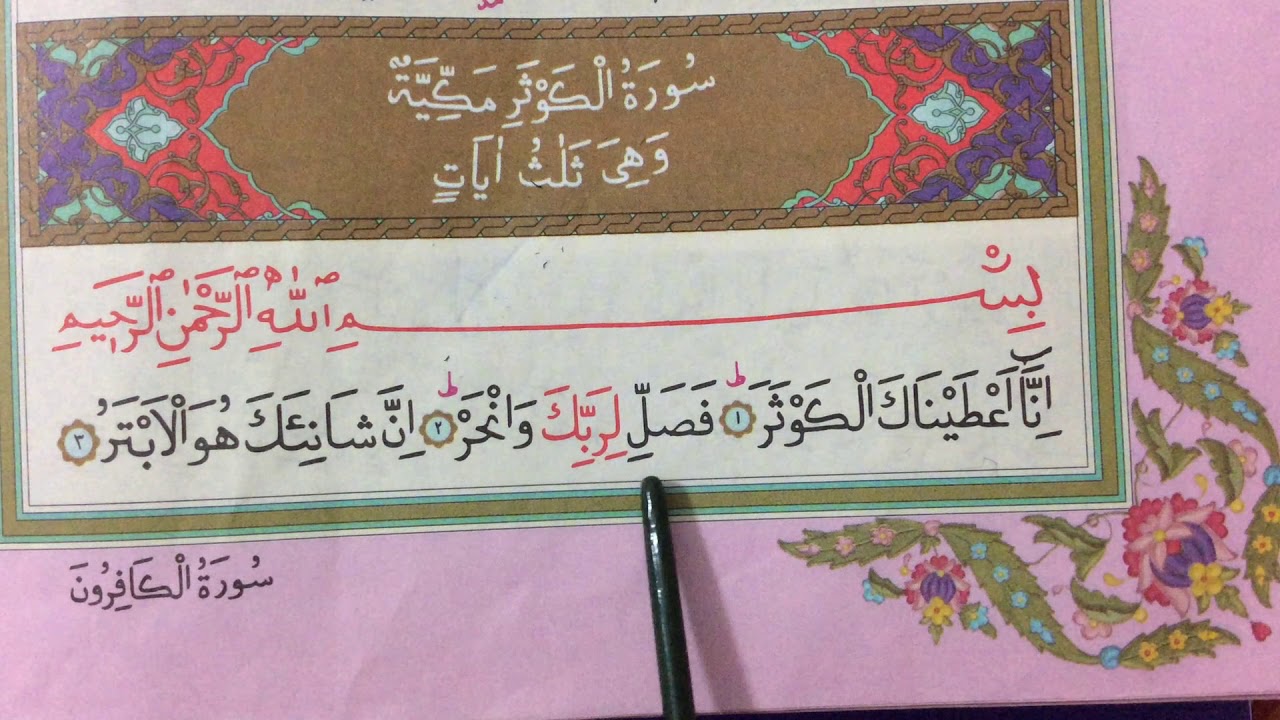 سُورَةُ الْكَوْثَرِ مَكِّيَّةٌ
وَهِيَ ثَلٰثُ اٰيَاتٍ
بِسْمِ اللّٰهِ الرَّحْمٰنِ الرَّحِيمِ
اِنَّٓا اَعْطَيْنَاكَ الْكَوْثَرَ ﴿١﴾ ط فَصَلِّ لِرَبِّكَ وَانْحَرْ ﴿٢﴾ ط اِنَّ شَانِئَكَ هُوَ الْاَبْتَرُ ﴿٣﴾
سُورَةُ الْكَافِرُونَ